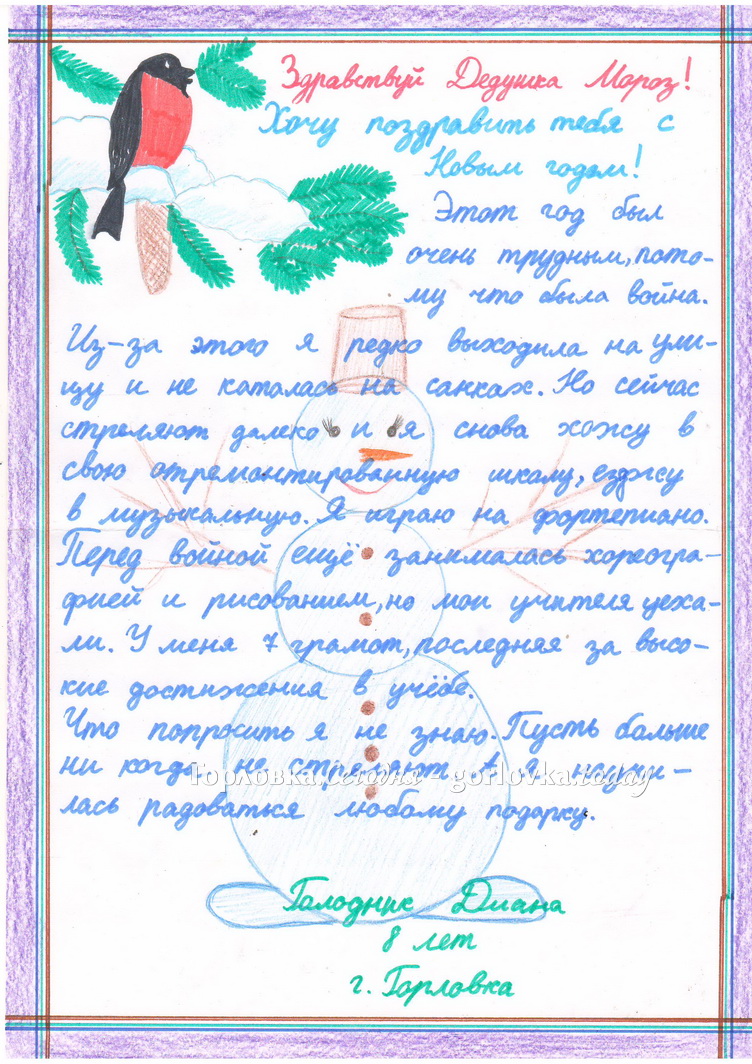 Здравствуй Дедушка Мороз!
Хочу поздравить тебя с
Новым годом!
Этот год был
очень трудным, пото-
му что была война.
Из-за этого я редко выходила на ули-
цу и не каталась на санках. Но сейчас
стреляют далеко и я снова хожу в
свою отремонтированную школу, езджу
в музыкальную. Я играю на фортепиано.
Перед войной ещё занималась хореогра-
фией и рисованием, но мои учителя уеха-
ли. У меня 7 грамот, последняя за высо-
кие достижения в учёбе.
Что попросить я не знаю. Пусть больше
ни когда не стреляют. А я научи-
Горловка.сегодня - gorlovka.today
лась радоваться любому подарку.
Голодник Диана
8 лет
г. Горловка